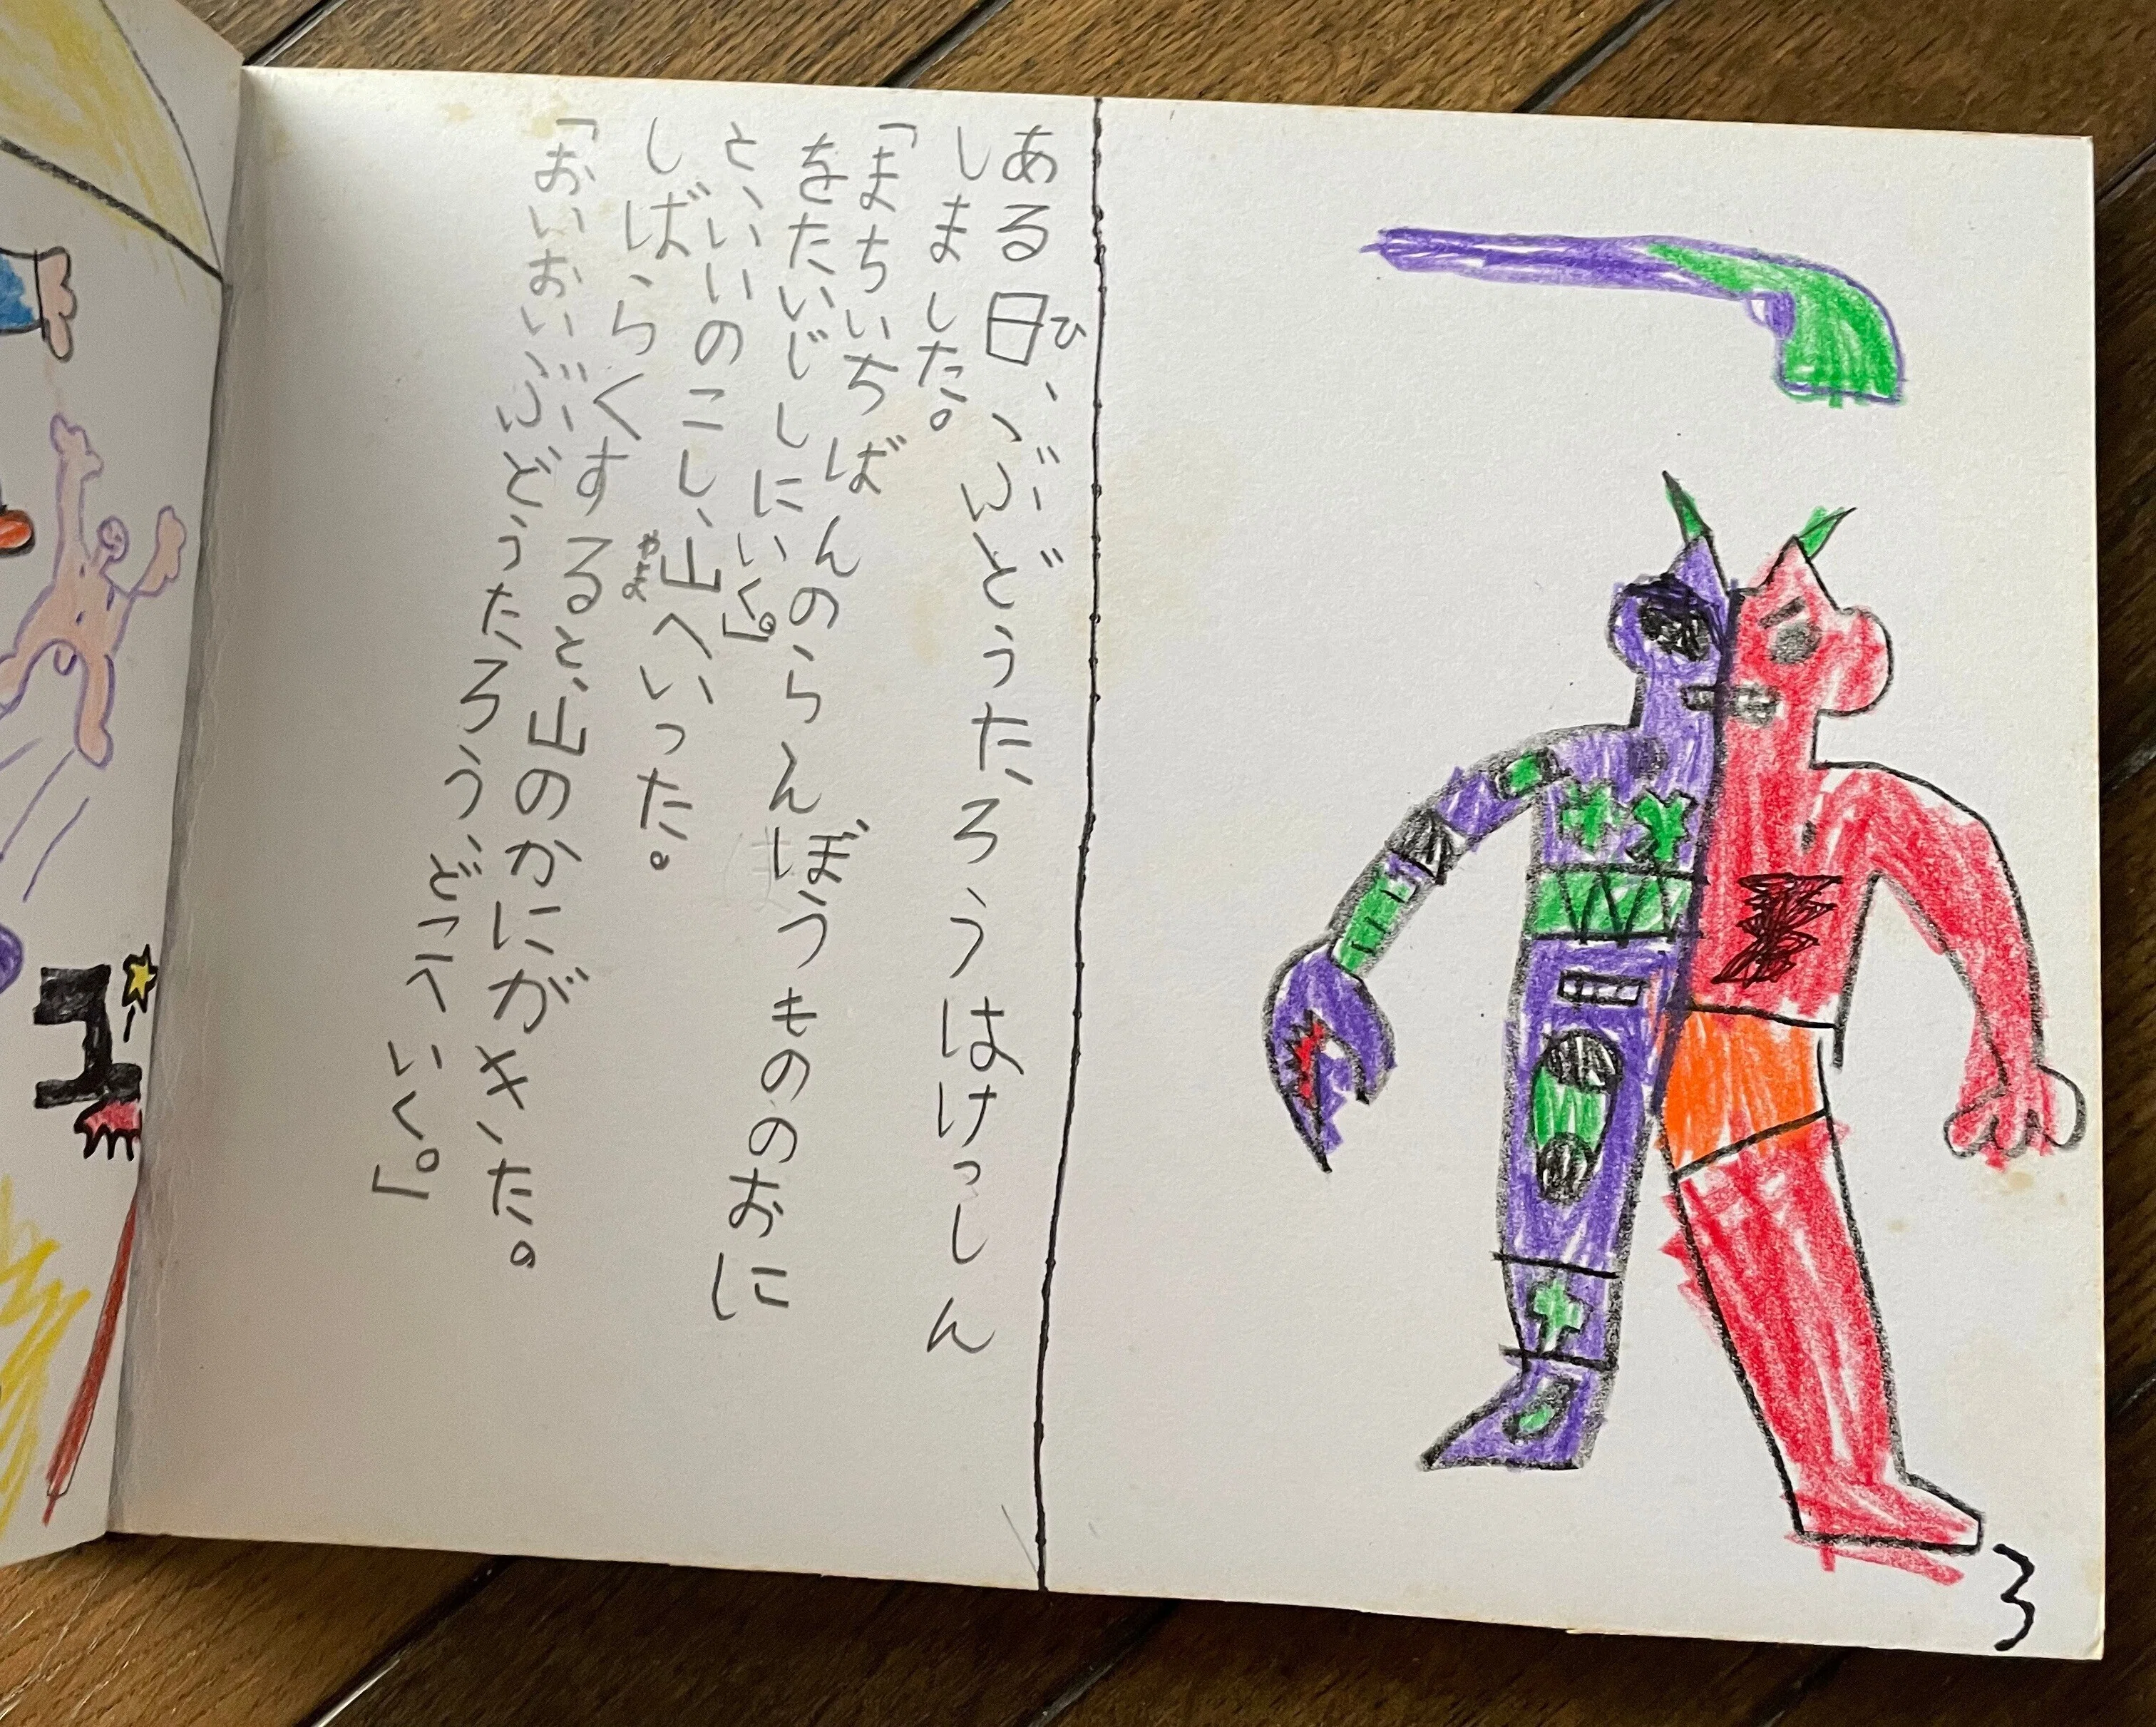 ある日、ぶどうたろうはけっしん
ひ
しました。
「まちいちばんのらんぼうもののおに
をたいじしにいく。」
と、いいのこし、山へいった。
やま
しばらくすると、山のかにがきた。
「おいおい、ぶどうたろう、どこへいく。」
3